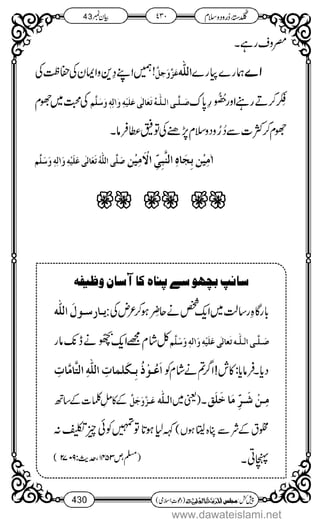 گلدستہ دُرود و سلام
٤٣٠
بیان نمبر 43
مصروف رہے۔
اے ہمارے پیارے اللہ عَزَّوَجَلَّ! ہمیں اپنے دِین و ایمان کی حفاظت کی
فِکْر کرتے رہنے اور حُضُور پاک صَلَّی اللہُ تَعَالٰی عَلَیْہِ وَاٰلِہٖ وَسَلَّم کی محبت میں جھوم
جھوم کر کثرت سے دُرُود و سلام پڑھنے کی توفیق عطا فرما۔
اٰمِیْن بِجَاہِ النَّبِیِّ الْاَمِیْن صَلَّی اللہُ تَعَالٰی عَلَیْہِ وَاٰلِہٖ وَسَلَّم
سانپ بچھو سے پناہ کا آسان وظیفہ
بارگاہِ رسالت میں ایک شخص نے حاضِر ہو کر عرض کی: یارسولَ اللہ
صَلَّی اللہُ تَعَالٰی عَلَیْہِ وَاٰلِہٖ وَسَلَّم کل شام مجھے ایک بچھو نے ڈنک مار
دیا۔ فرمایا: کاش! اگر تم نے شام کو اَعُوْذُ بِکَلِمَاتِ اللّٰہِ التَّامَّاتِ
مِنْ شَرِّ مَا خَلَقَ۔ (یعنی میں اللہ عَزَّوَجَلَّ کے کامل کلمات کے ساتھ
مخلوق کے شر سے پناہ لیتا ہوں) کہہ لیا ہوتا تو تمہیں کوئی چیز تکلیف نہ
پہنچاتی۔ (مسلم، ص ۱۴۵۳، حدیث: ۲۷۰۹)
430
پیش کش: مجلس المدینۃ العلمیۃ (دعوتِ اسلامی)
www.dawateislami.net